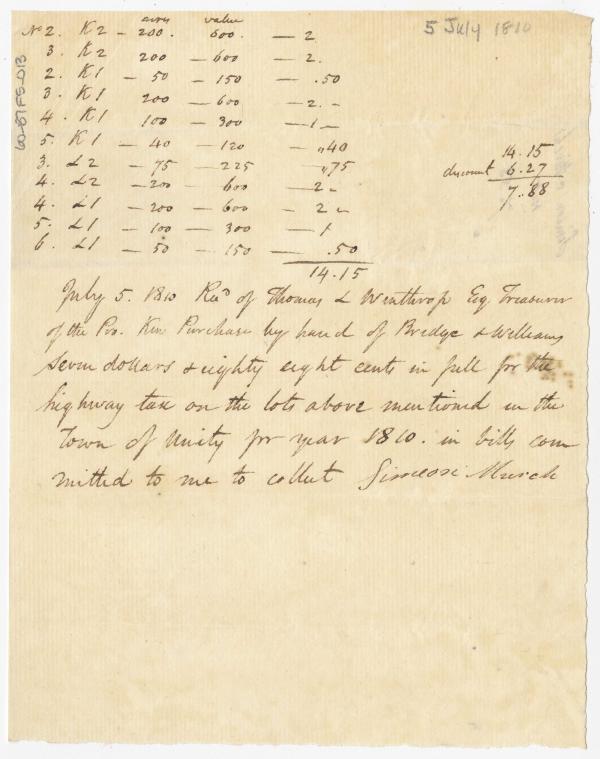 acres value
No 2. K2 – 200. – 600. – 2
5 July 1810
3. K2 200 – 600 – 2.
2. K1 – 50 – 150 – .50
3. K1 200 – 600 – 2. –
4. K1 100 – 300 – 1 –
5. K1 – 40 – 120 – „40
3. L2 – 75 – 225 – „75
4. L2 – 200 – 600 – 2 –
4. L1 – 200 – 600 – 2 –
5. L1 – 100 – 300 – 1
6. L1 – 50 – 150 – .50
14.15
14.15
discount 6.27
7.88
60-87FS-D13
July 5. 1810 Recd of Thomas L Winthrop Esq. Treasurer
of the Pro. Ken Purchase by hand of Bridge & Williams
Seven dollars & eighty eight cents in full for the
highway tax on the lots above mentioned in the
Town of Unity for year 1810. in bills com
mitted to me to collect Simeon Murch